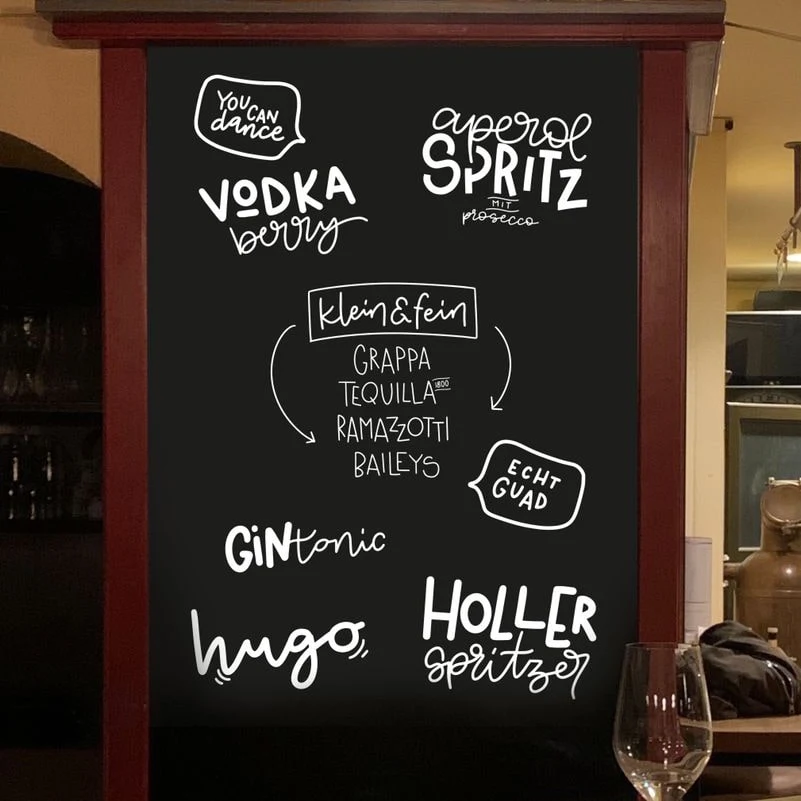 YOU CAN
dance
VODKA
berry
aperol
SPRITZ
MIT
prosecco
klein&fein
GRAPPA
TEQUILLA 1800
RAMAZZOTTI
BAILEYS
ECHT
GUAD
GiNtonic
hugo
HOLLER
spritzer